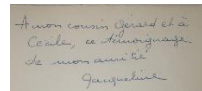 A mon cousin Gérard et à
Cécile, ce témoignage
de mon amitié
Jacqueline